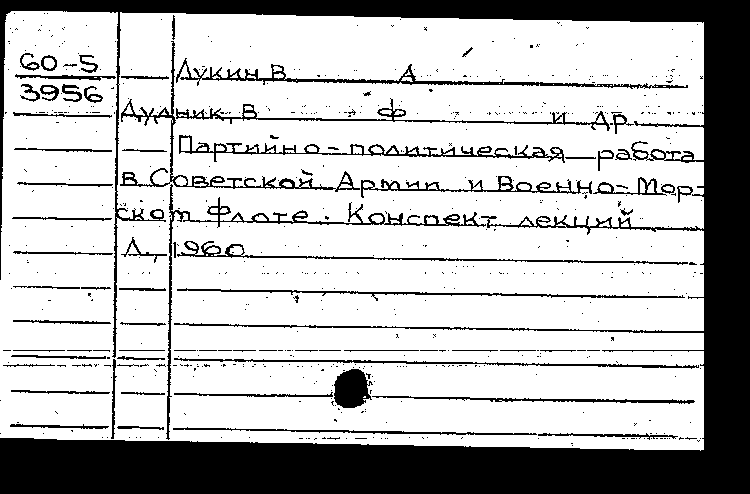 60-5 Лукин, В А
3956
Дудник, В Ф и др.
Партийно-политическая работа
в Советской Армии и Военно-Мор-
ском Флоте. Конспект лекций
Л., 1960